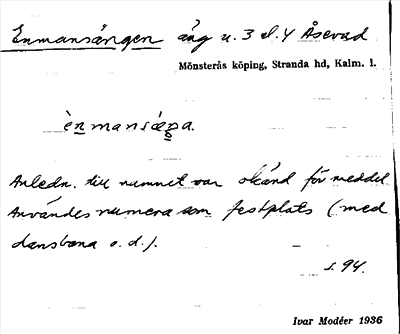 Enmansängen äng u. 3 el. 4 Åsevad
Mönsterås köping, Stranda hd, Kalm. l.
ènmansæŋa.
Anledn. till namnet var okänd för meddel.
Användes numera som festplats (med
dansbana o. d.).
s. 94.
Ivar Modéer 1936